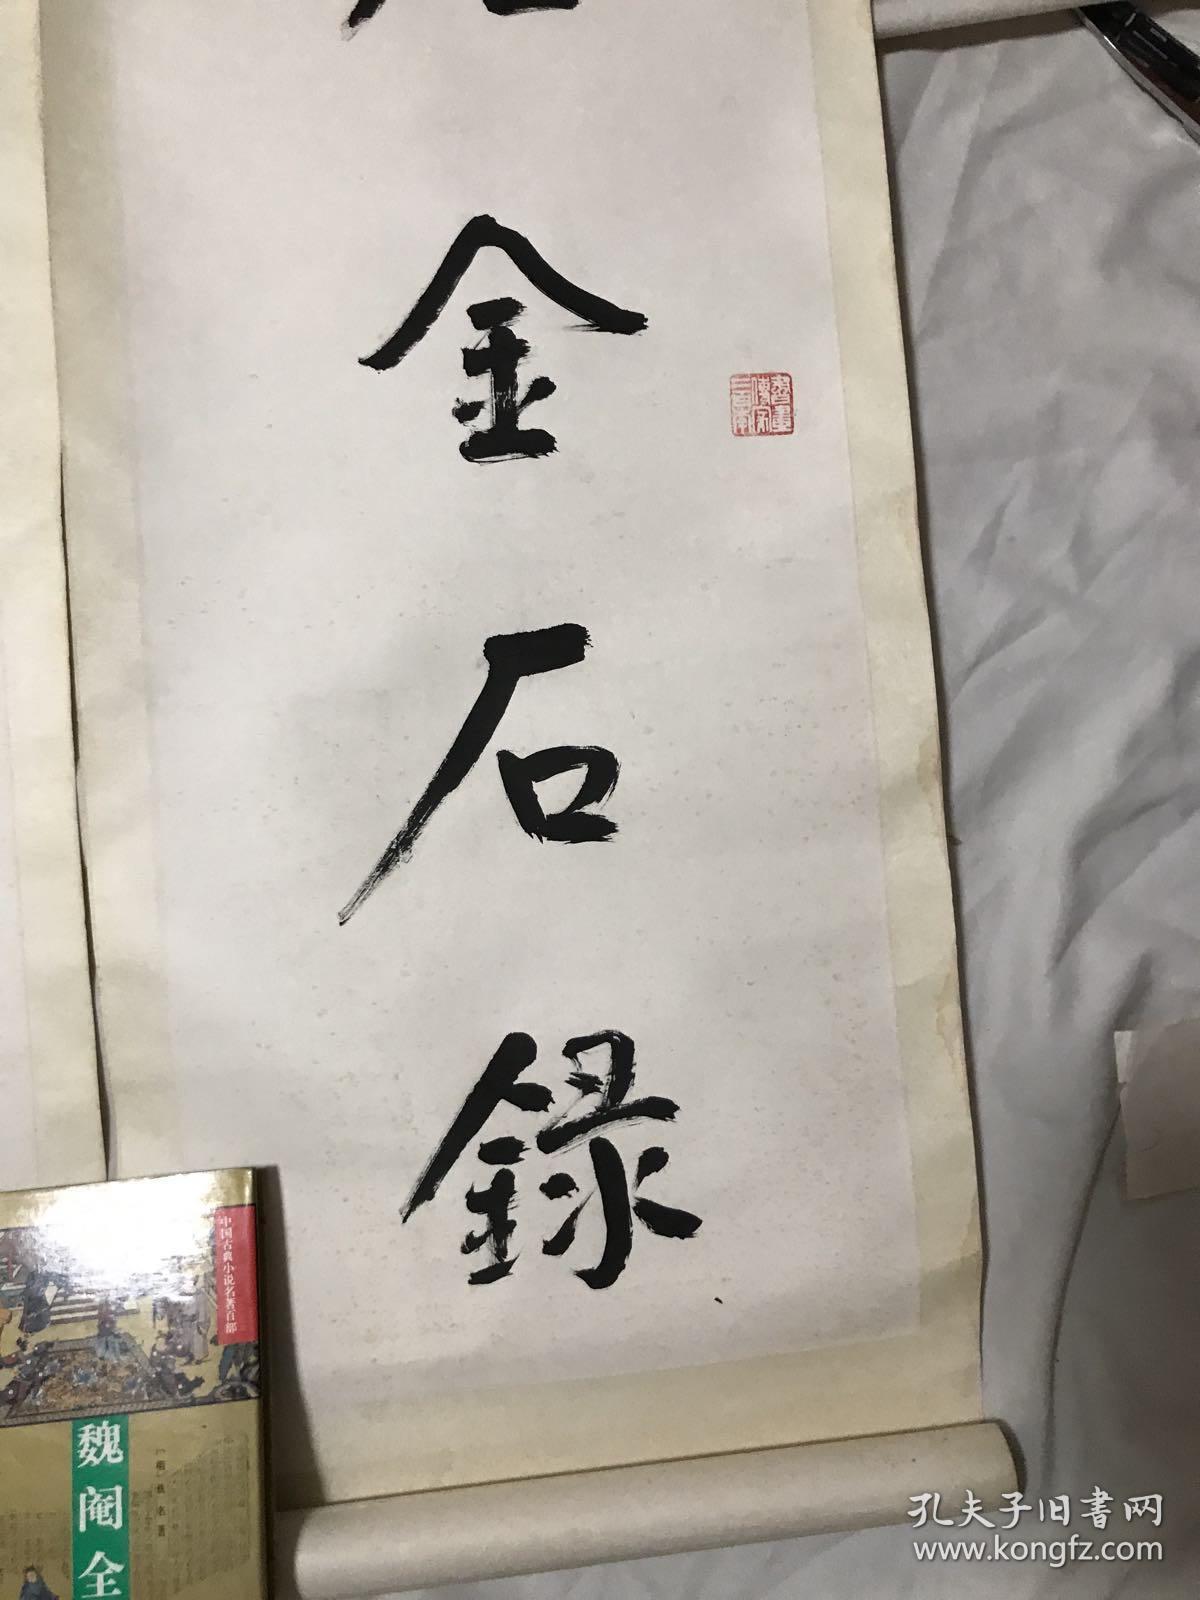 金
石
錄
中国古典小说名著百部
魏阉全
孔夫子旧书网
www.kongfz.com